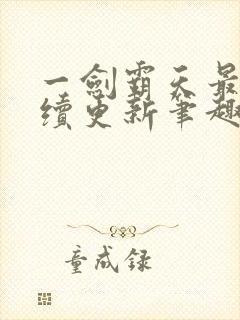 一劍霸天最
續更新筆趣
童成録